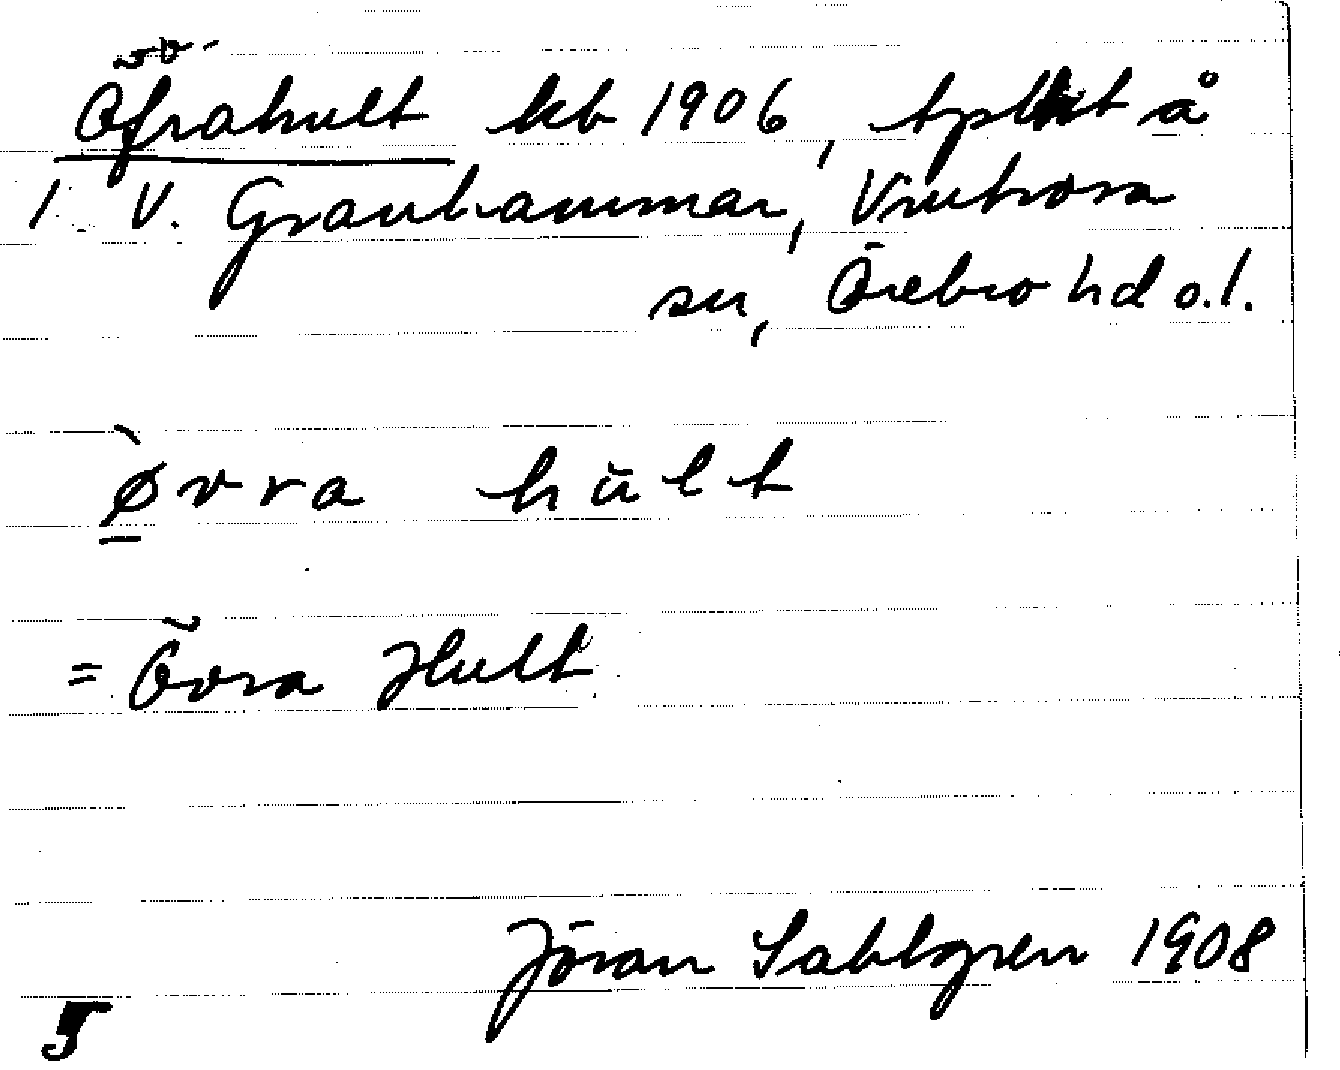 Öfrahult kb 1906, tplht å
1 V. Granhammar, Vintrosa
sn, Örebro hd o.l.
øvra hult
= Övra Hult
Jöran Sahlgren 1908
5